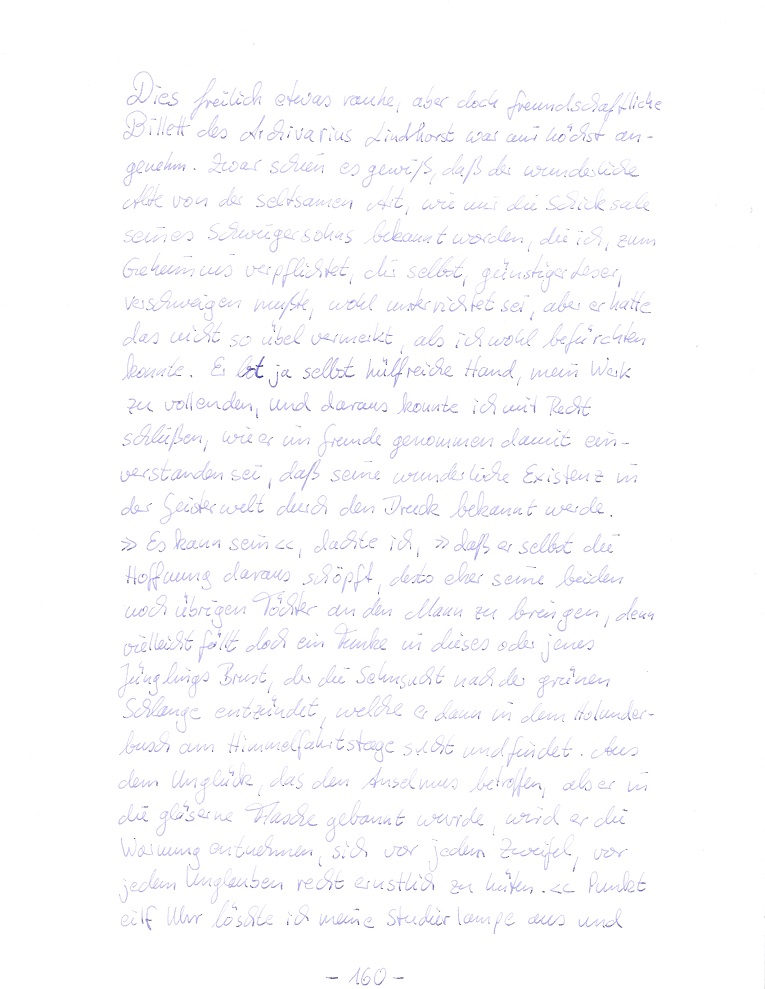 Dies freilich etwas rauhe, aber doch freundschaftliche
Billett des Archivarius Lindhorst war mir höchst an-
genehm. Zwar schien es gewiß, daß der wunderliche
Alte von der seltsamen Art, wie mir die Schicksale
seines Schwiegersohns bekannt worden, die ich, zum
Geheimnis verpflichtet, dir selbst, günstiger Leser,
verschweigen mußte, wohl unterrichtet sei, aber er hatte
das nicht so übel vermerkt, als ich wohl befürchten
konnte. Er bot ja selbst hülfreiche Hand, mein Werk
zu vollenden, und daraus konnte ich mit Recht
schließen, wie er im Grunde genommen damit ein-
verstanden sei, daß seine wunderliche Existenz in
der Geisterwelt durch den Druck bekannt werde.
»Es kann sein«, dachte ich, »daß er selbst die
Hoffnung daraus schöpft, desto eher seine beiden
noch übrigen Töchter an den Mann zu bringen, denn
vielleicht fällt doch ein Funke in dieses oder jenes
Jünglings Brust, der die Sehnsucht nach der grünen
Schlange entzündet, welche er dann in dem Holunder-
busch am Himmelfahrtstage sucht und findet. Aus
dem Unglück, das den Anselmus betroffen, als er in
die gläserne Flasche gebannt wurde, wird er die
Warnung entnehmen, sich vor jedem Zweifel, vor
jedem Unglauben recht ernstlich zu hüten.« Punkt
eilf Uhr löschte ich meine Studierlampe aus und
- 160 -